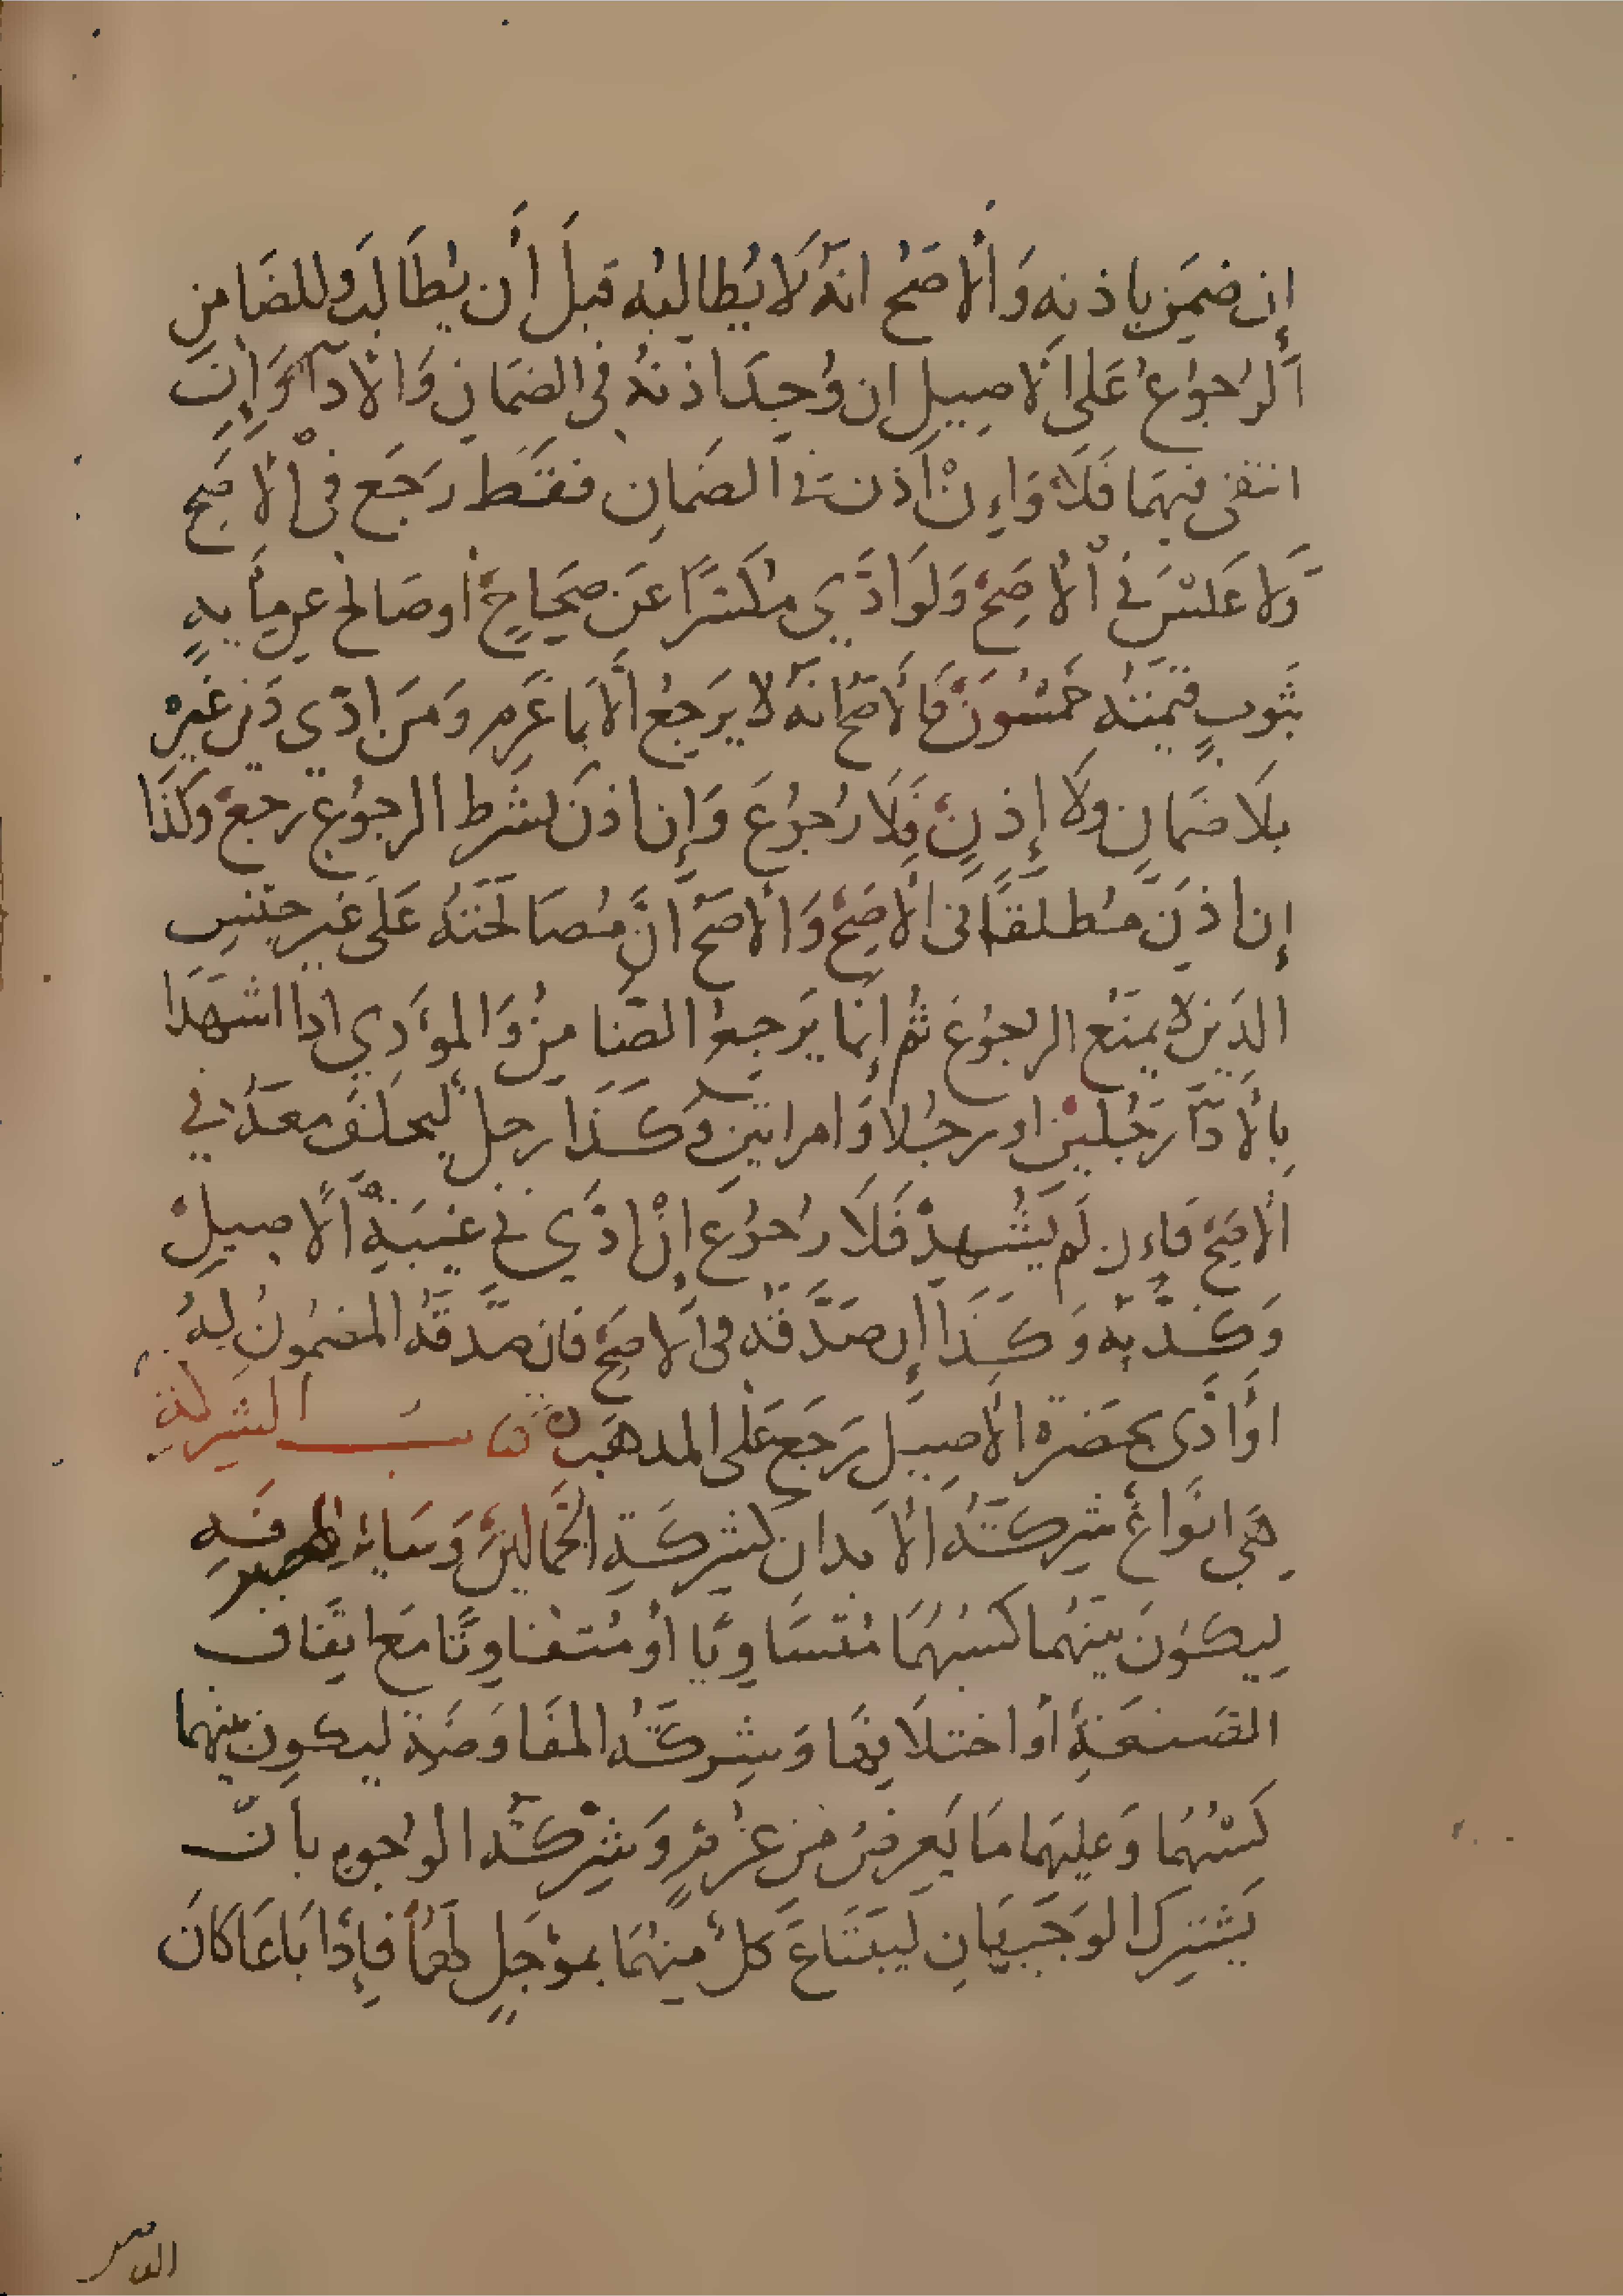 إن ضمن باذنه وَالأصَحُّ انهُ لَا يُطالبُه قبلَ أَن يُطَالَبَ وللضَامِنِ
الرجُوعُ عَلى الأصِيلِ ان وُجِدَ اذنهُ فى الضمَانِ وَالأدآءِ وَإِن
انتفى فيهمَا فَلَا وَإِنْ أذن فى الضمَانِ فقَطْ رَجَعَ فى الأصَحِّ
وَلا عَكسَ فى الأصَحِّ وَلَو ادَّى مكَسَّرًا عَن صِحَاحٍ أو صَالح عن مِأيةٍ
بثَوبٍ قيمَتهُ خَمسُونَ فَالأصَحُّ انهُ لا يرَجعُ إلّا بمَا غَرِم وَمَن ادّى دَين غَيرِهْ
بلَا ضَمانٍ ولَا إِذنٍ فَلَا رُجُوعَ وَإِن اذنَ بشَرط الرجُوعِ رجعَ وَكَذَا
إن اذِنَ مُطلقًا فى الأصَحِّ وَالأصَحُّ انَّ مُصَالَحَتَهُ عَلَى غير جِنسِ
الدَين لا يمنَع الرجُوعَ ثُم إنمَا يَرجِعُ الضّامِنُ وَالموَدِي اذا اشهَدَا
بالأدآءِ رَجُلَين او رجُلًا وَامراتينِ وَكَذَا رجل ليحلفَ معَهُ فى
الأصَحِّ فَإن لَم يشُهِدْ فَلَا رُجُوعَ إنْ ادَّى فى غيبَةِ الأصِيلِ
وَكذَّبهُ وَكَذَا إن صَدَّقهُ فى الأصَحِّ فان صَدقهُ المضمُونُ لهُ
اوَ ادَّى بحَضرة الأصِيل رَجَع عَلَى المذهَبِ ٥ كتاب الشركةِ
هي انَواعٌ شِركَةُ الأبدان كشركَةِ الحَمالينَ وَسَايرِ المحترفَةِ
لِيكوُنَ بينهُما كسبُهُمَا مُتَسَاوِيًا أو مُتفَاوِتًا مَعَ اتِفَاق
الصَنعَةِ أو اختلَافِهَا وَشِركَةُ المفَاوَضَةِ ليكونَ بينهما
كَسبُهُمَا وَعليهمَا مَا يَعرِضُ مِن غُرْمٍ وَشِركَةُ الوُجوهِ بأنّ
يَشتركَ الوَجيهَانِ ليَبتَاعَ كلٌ منهُمَا بموَجَلٍ لَهمَا فإذَا بَاعَا كَانَ